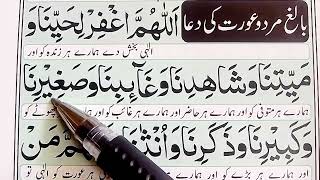 بالغ مرد و عورت کی دعا
اَللّٰهُمَّ اغْفِرْ لِحَيِّنَا وَ
الٰہی بخش دے ہمارے ہر زندہ کو اور
مَيِّتِنَا وَ شَاهِدِنَا وَ غَآئِبِنَا وَ صَغِيْرِنَا
ہمارے ہر متوفی کو اور ہمارے ہر حاضر کو اور ہمارے ہر غائب کو اور ہمارے چھوٹے کو
وَ كَبِيْرِنَا وَ ذَكَرِنَا وَ اُنْثٰنَا مَّ مَنْ
اور ہمارے ہر بڑے کو اور ہمارے عورت کو الٰہی تو